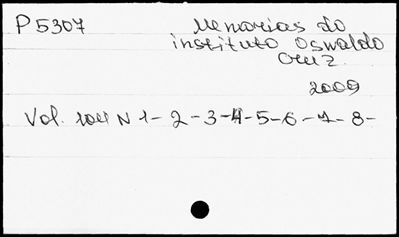 P5307 Memorias do
instituto Oswaldo
Cruz
2009
Vol. 104 N 1 - 2 - 3 - 4 - 5 - 6 - 7 - 8 -